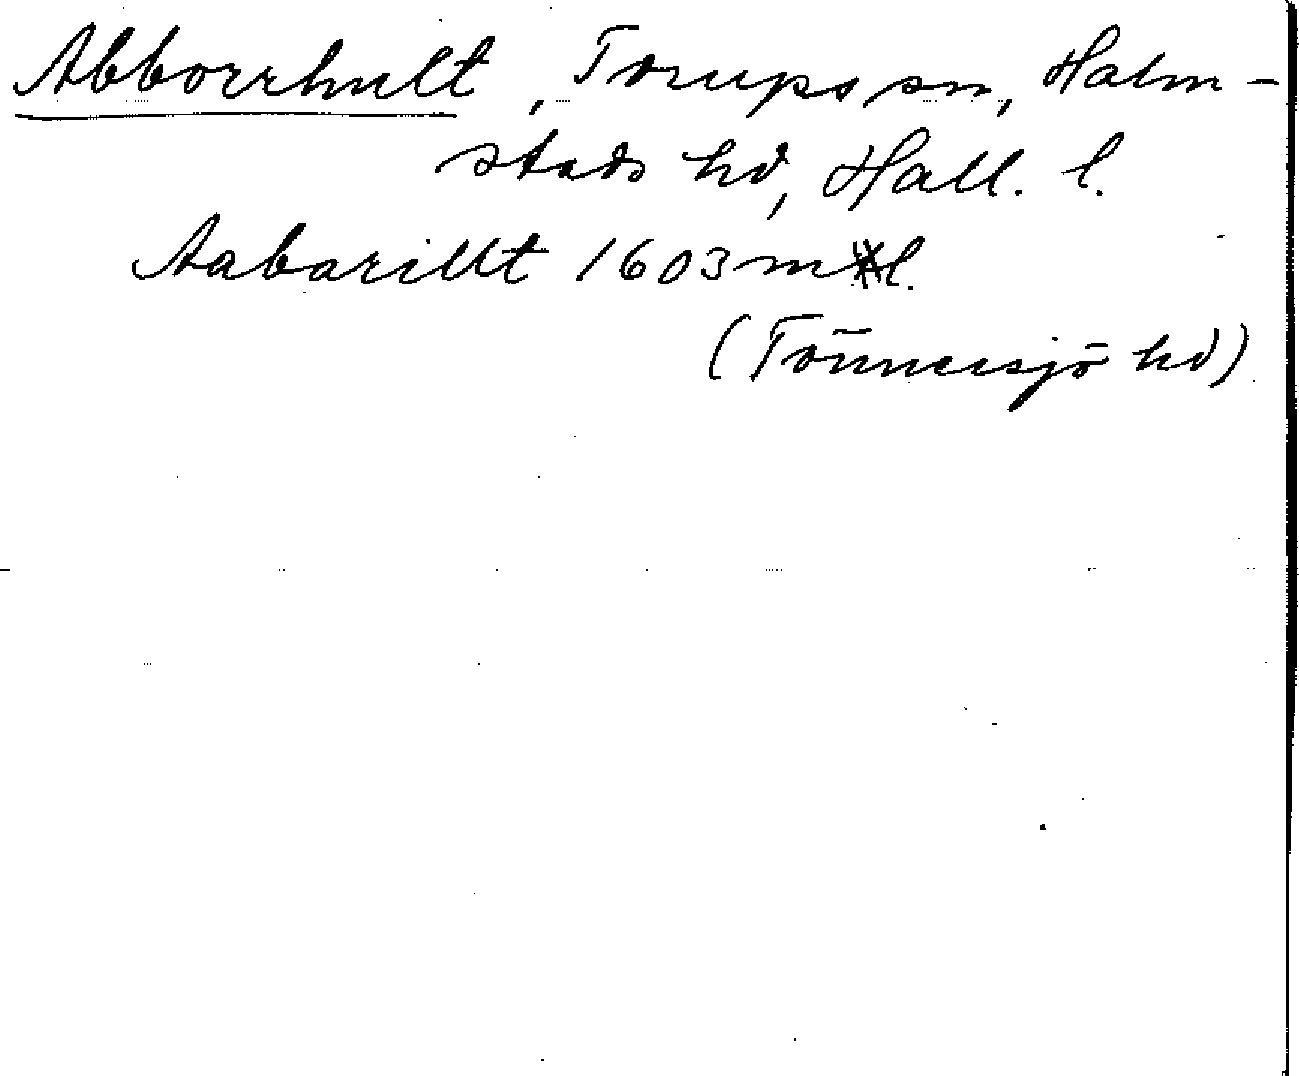 Abborrhult, Torups sn, Halm-
stads hd, Hall. l.
Aabarillt 1603 ml.
(Tönnersjö hd)